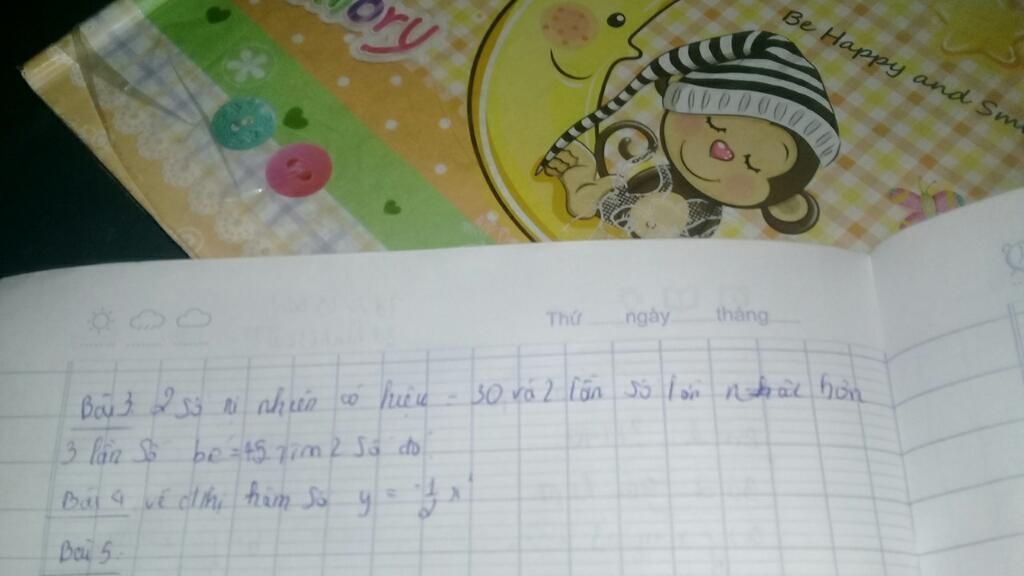 mory
Be Happy and Sm
Thứ ngày tháng
Bài 3. 2 số tự nhiên có hiệu = 30 và 2 lần số lớn hơn
3 lần số bé = 45 Tìm 2 số đó
Bài 4 vẽ đthị hàm số y = -1/2 x
Bài 5.